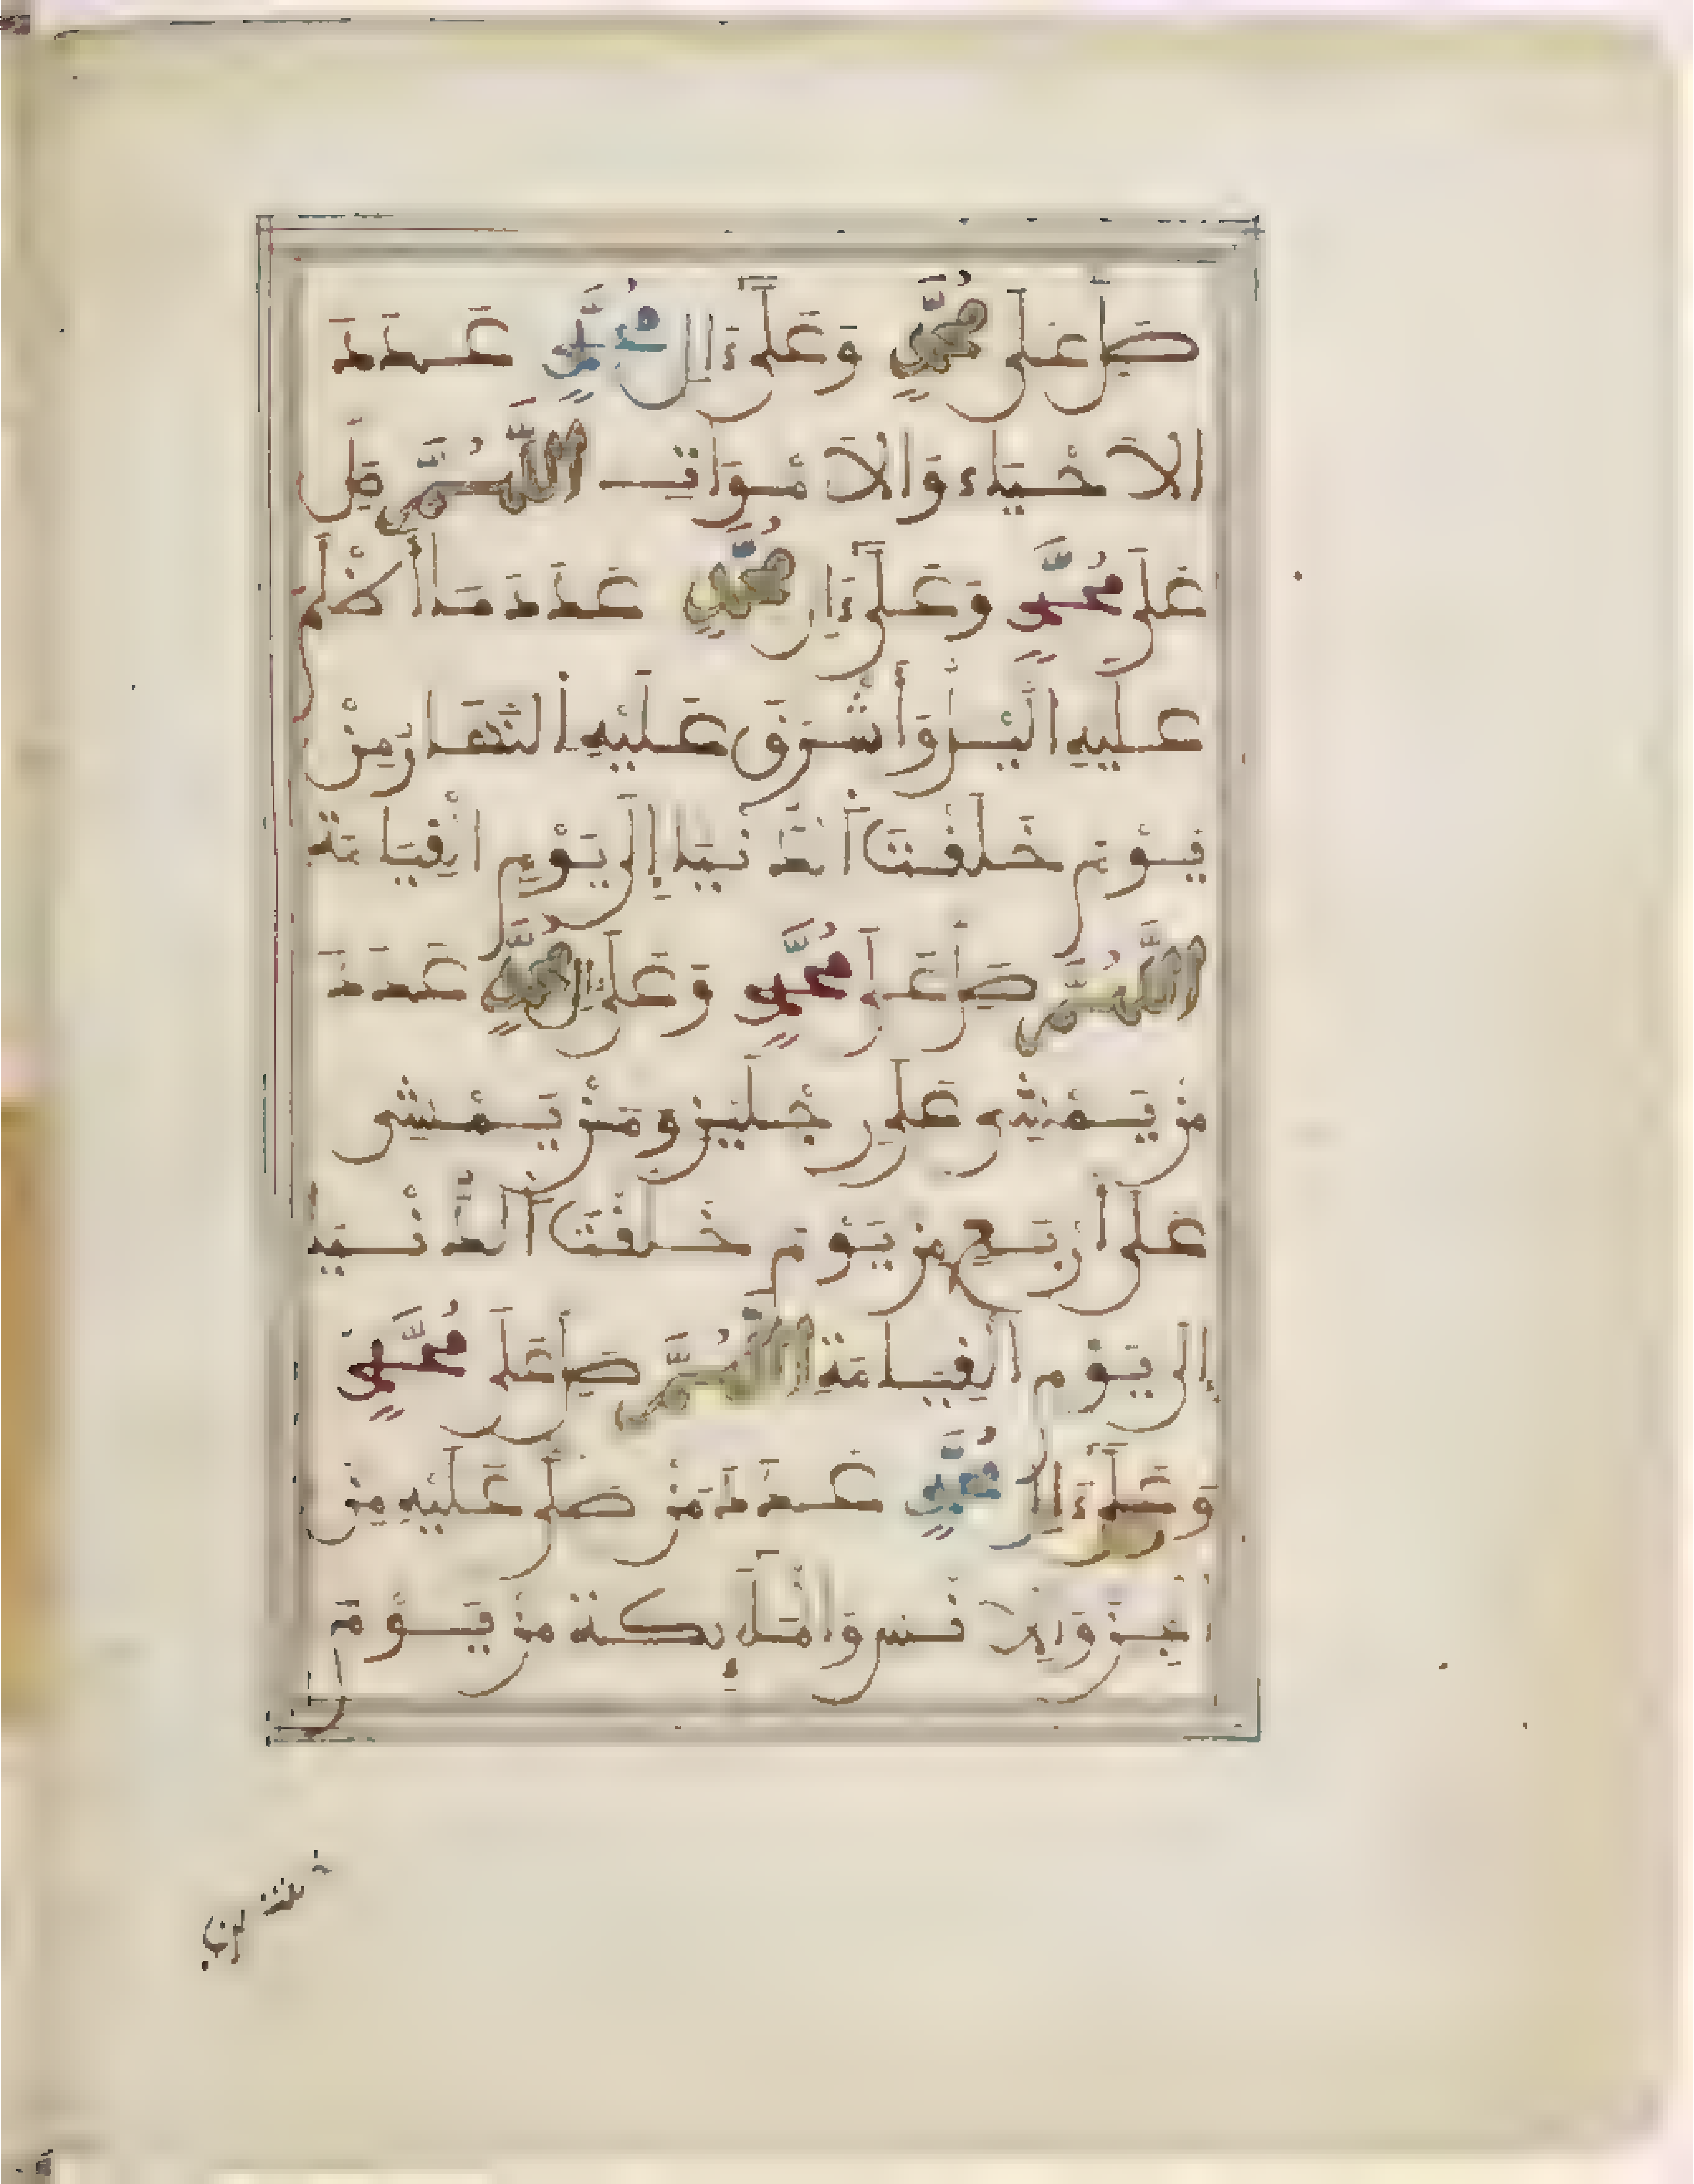 صَلِّ عَلَى مُحَمَّدٍ وَعَلَىٰ ءَالِ مُحَمَّدٍ عَدَدَ
الاَحْيَاءِ وَالاَمْوَاتِ اللَّهُمَّ صَلِّ
عَلَى مُحَمَّدٍ وَعَلَىٰ ءَالِ مُحَمَّدٍ عَدَدَ مَا أَظْلَمَ
عَلَيْهِ الَّيْلُ وَأَشْرَقَ عَلَيْهِ النَّهَارُ مِنْ
يَوْمِ خَلَقْتَ الدُّنْيَا إِلَى يَوْمِ الْقِيَامَةِ
اللَّهُمَّ صَلِّ عَلَى مُحَمَّدٍ وَعَلَى ءَالِ مُحَمَّدٍ عَدَدَ
مَنْ يَمْشِي عَلَى رِجْلَيْنِ وَمَنْ يَمْشِي
عَلَى أَرْبَعٍ مِنْ يَوْمِ خَلَقْتَ الدُّنْيَا
إِلَى يَوْمِ الْقِيَامَةِ اللَّهُمَّ صَلِّ عَلَى مُحَمَّدٍ
وَعَلَىٰ ءَالِ مُحَمَّدٍ عَدَدَ مَنْ صَلَّى عَلَيْهِ مِنَ
الْجِنِّ وَالاِنْسِ وَالْمَلَٰئِكَةِ مِنْ يَوْمِ